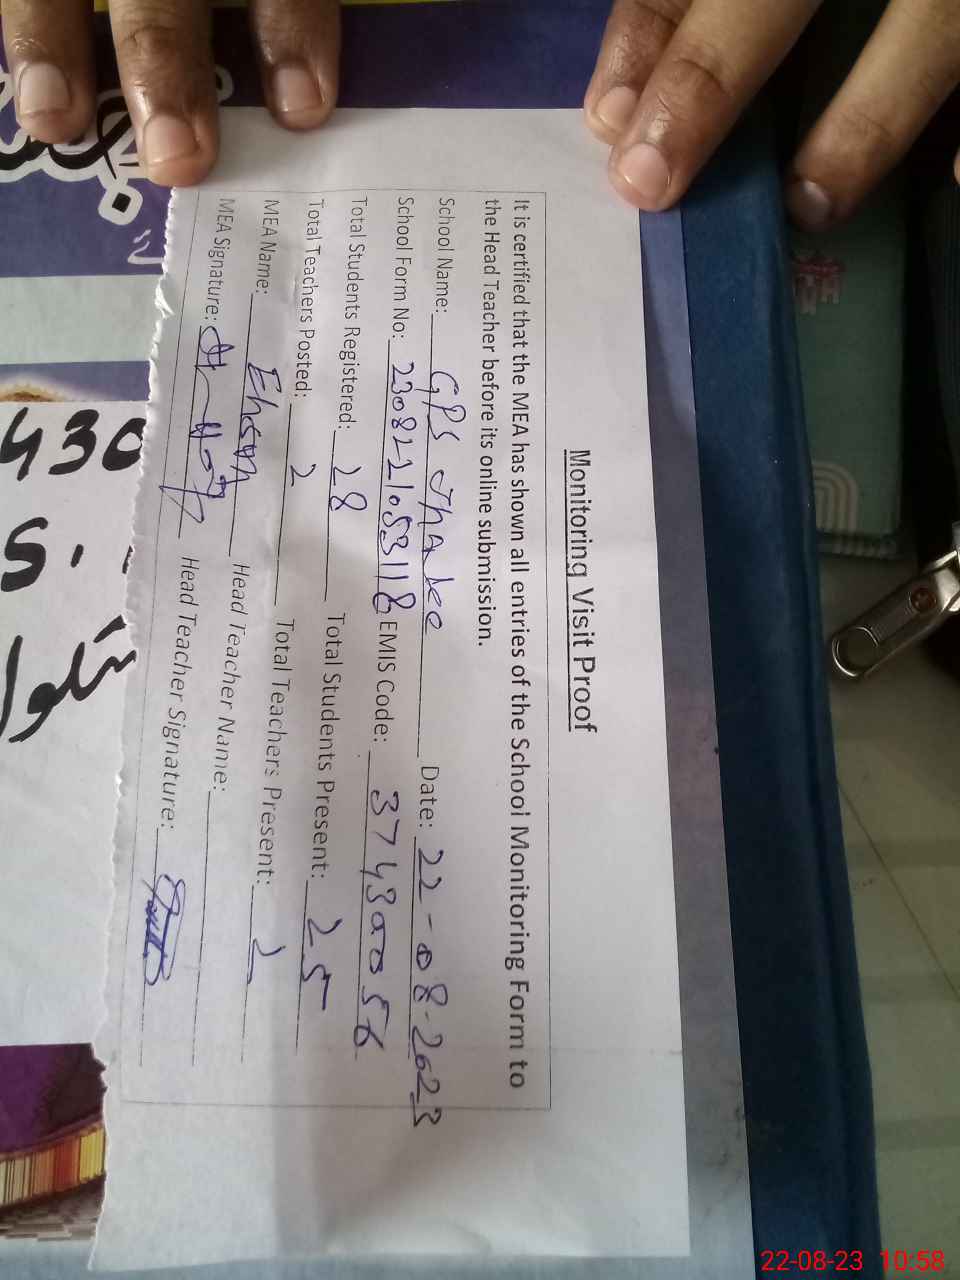 Monitoring Visit Proof
It is certified that the MEA has shown all entries of the School Monitoring Form to
the Head Teacher before its online submission.
School Name: GPS Date: 22-08-2023
School Form No: 2308221053118 EMIS Code: 37430056
Total Students Registered: 28 Total Students Present: 25
Total Teachers Posted: 2 Total Teachers Present: 2
MEA Name: Ehsan Head Teacher Name:
MEA Signature: Head Teacher Signature:
430
22-08-23 10:58